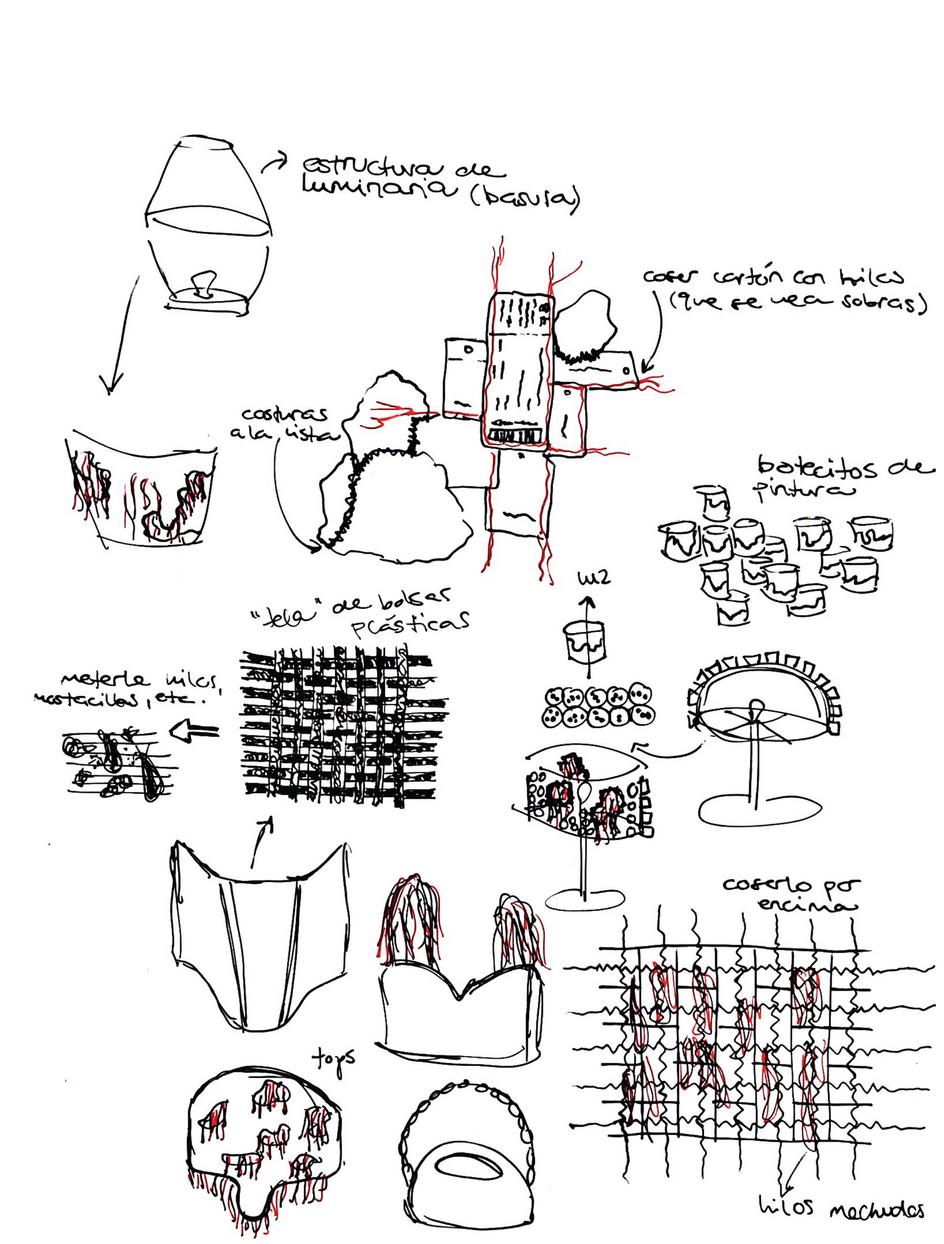 estructura de
luminaria (basura)
coser cartón con hilos
(que se vea sobras)
costuras
a la vista
botecitos de
pintura
luz
"tela" de bolsas
plásticas
meterle hilos,
mostacillas, etc.
coserlo por
encima
tops
hilos mechudos